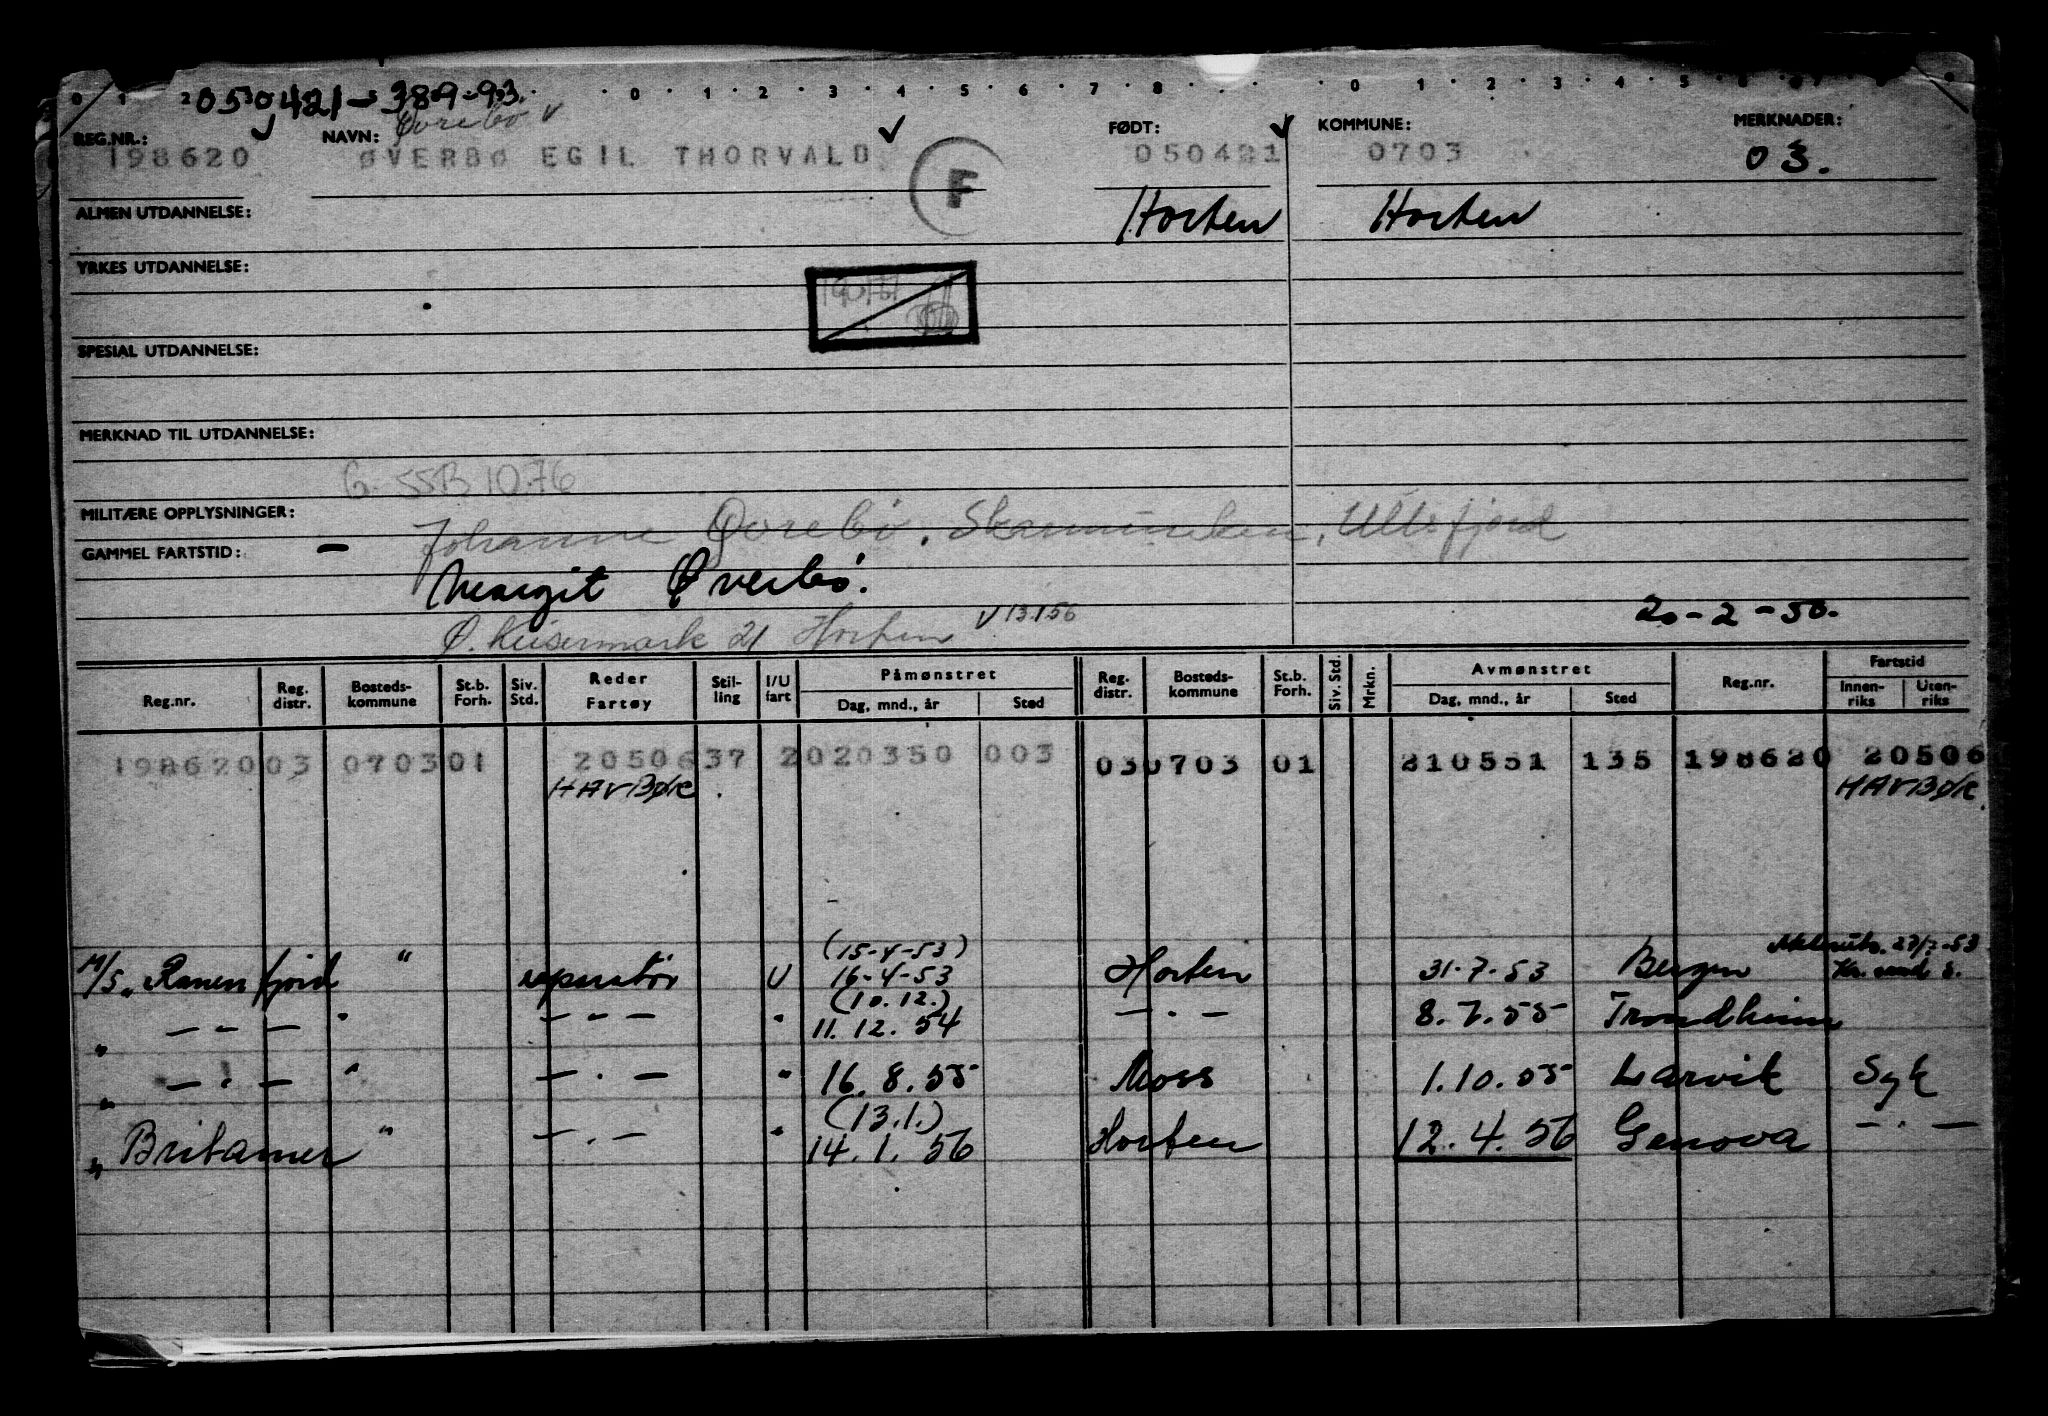 0 1 2 0 1 2 3 4 5 6 7 8 0 1 2 3 4 5 6 7
050421-389-93.
Øvrebø v
REG.NR.: NAVN: FØDT: KOMMUNE: MERKNADER:
198620 ØVERBØ EGIL THORVALD 050421 0703 03.
F
ALMEN UTDANNELSE: Horten Horten
YRKES UTDANNELSE:
SPESIAL UTDANNELSE:
MERKNAD TIL UTDANNELSE:
G. SSB 10.76
MILITÆRE OPPLYSNINGER:
Johanne Øvrebø, Ullsfjord
GAMMEL FARTSTID: -
Margit Øverbø.
20-2-50.
Ø. Keisermark 21 Horten v 13.1.56
Reg.nr. Reg. distr. Bosteds-kommune St.b. Forh. Siv. Std. Reder Fartøy Stil-ling I/U fart Påmønstret Dag, mnd., år Sted Reg. distr. Bosteds-kommune St.b. Forh. Siv. Std. Mrkn. Avmønstret Dag, mnd., år Sted Reg.nr. Fartstid Innen-riks Uten-riks
198620 03 0703 01 20506 37 2 020350 003 03 0703 01 210551 135 198620 20506
HAVBØR. HAVBØR.
(15-4-53) 27/7-53
M/S "Ranenfjord" reparatør U 16-4-53 Horten 31-7-53 Bergen Kr.sund S.
(10.12.)
" — " — " — " — " 11.12.54 — " — 8.7.55 Trondheim
" — " — " — " — " 16.8.55 Moss 1.10.55 Larvik Syk
(13.1.)
" Britamer " — " — " 14.1.56 Horten 12.4.56 Genova — " —